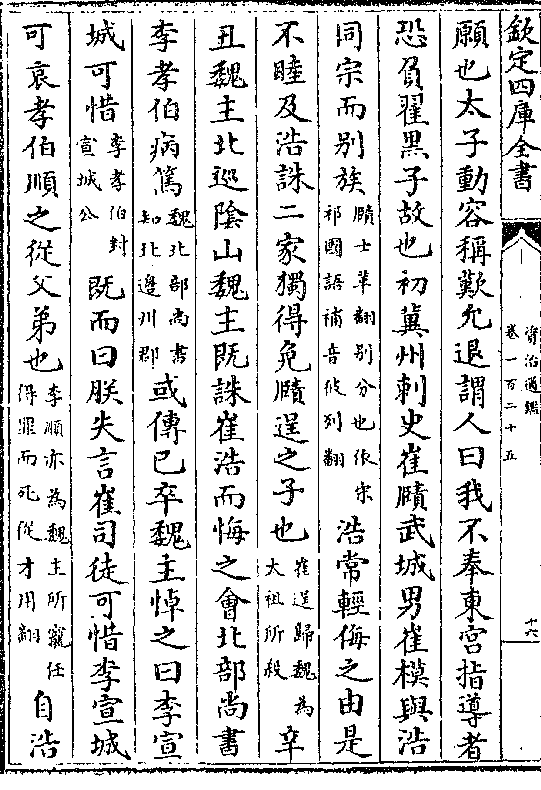 欽定四庫全書
資治通鑑
卷一百二十五
十六
願也太子動容稱歎允退謂人曰我不奉東宫指導者
恐負翟黑子故也初冀州刺史崔賾武城男崔模與浩
同宗而别族賾士革翻别分也依宋祁國語補音彼列翻浩常輕侮之由是
不睦及浩誅二家獨得免賾逞之子也崔逞歸魏為太祖所殺辛
丑魏主北巡隂山魏主既誅崔浩而悔之會北部尚書
李孝伯病篤魏北部尚書知北邊州郡或傳已卒魏主悼之曰李宣
城可惜李孝伯封宣城公既而曰朕失言崔司徒可惜李宣城
可哀孝伯順之從父弟也李順亦為魏主所寵任得罪而死從才用翻自浩